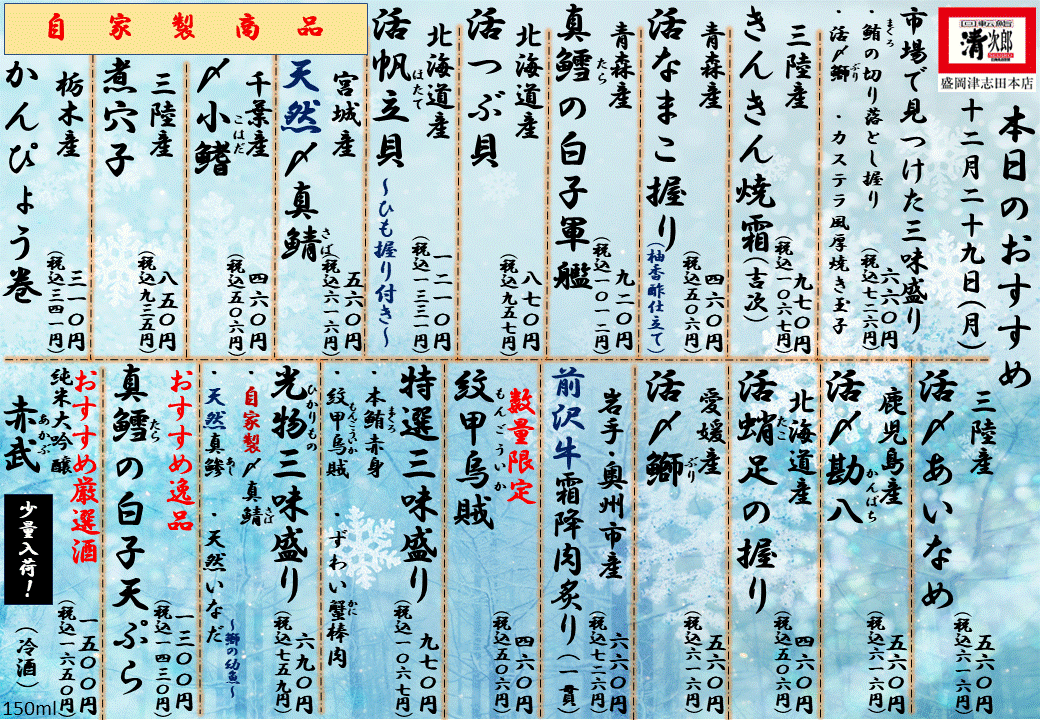 回転鮨
清次郎
盛岡津志田本店
本日のおすすめ
十二月二十九日(月)
市場で見つけた三味盛り
・鮪の切り落とし握り
まぐろ
・活〆鰤
ぶり
・カステラ風厚焼き玉子
六六〇円
(税込七二六円)
三陸産
きんきん焼霜(吉次)
九七〇円
(税込一〇六七円)
青森産
活なまこ握り(柚香酢仕立て)
四六〇円
(税込五〇六円)
青森産
真鱈の白子軍艦
たら
九二〇円
(税込一〇一二円)
北海道産
活つぶ貝
八七〇円
(税込九五七円)
北海道産
活帆立貝~ひも握り付き~
ほたて
一二一〇円
(税込一三三一円)
自家製商品
宮城産
天然〆真鯖
さば
五六〇円
(税込六一六円)
千葉産
〆小鰭
こはだ
四六〇円
(税込五〇六円)
三陸産
煮穴子
八五〇円
(税込九三五円)
栃木産
かんぴょう巻
三一〇円
(税込三四一円)
三陸産
活〆あいなめ
五六〇円
(税込六一六円)
鹿児島産
活〆勘八
かんぱち
五六〇円
(税込六一六円)
北海道産
活蛸足の握り
たこ
四六〇円
(税込五〇六円)
愛媛産
活〆鰤
ぶり
五六〇円
(税込六一六円)
岩手・奥州市産
前沢牛霜降肉炙り(一貫)
六六〇円
(税込七二六円)
数量限定
紋甲烏賊
もんごういか
四六〇円
(税込五〇六円)
特選三味盛り
・本鮪赤身
まぐろ
・紋甲烏賊
もんごういか
・ずわい蟹棒肉
かに
九七〇円
(税込一〇六七円)
光物三味盛り
ひかりもの
・自家製〆真鯖
さば
・天然真鯵
あじ
・天然いなだ
~鰤の幼魚~
六九〇円
(税込七五九円)
おすすめ逸品
真鱈の白子天ぷら
たら
一三〇〇円
(税込一四三〇円)
おすすめ厳選酒
純米大吟醸
赤武
あかぶ
少量入荷!
(冷酒)
一五〇〇円
(税込一六五〇円)
150ml